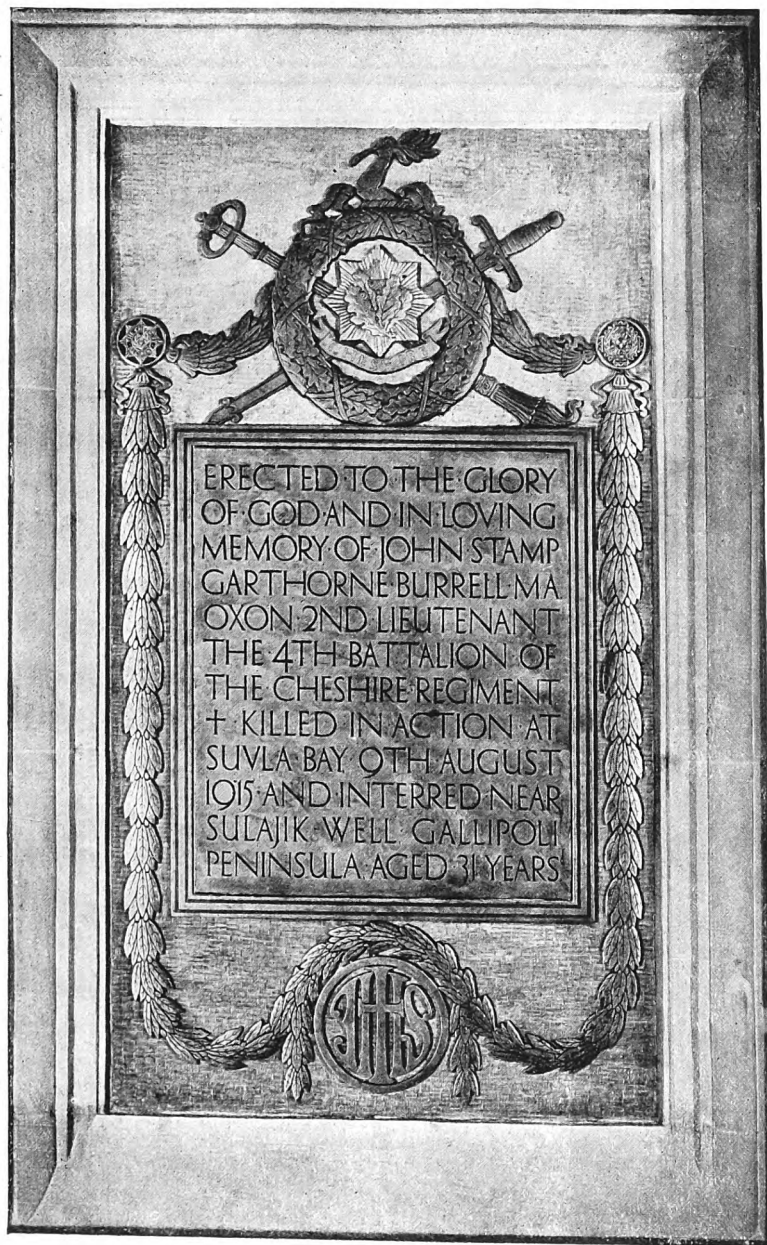 ERECTED·TO·THE·GLORY
OF·GOD·AND·IN·LOVING
MEMORY·OF·JOHN STAMP
GARTHORNE·BURRELL·MA
OXON·2ND LIEUTENANT
THE·4TH·BATTALION·OF
THE·CHESHIRE·REGIMENT
+·KILLED·IN·ACTION·AT
SUVLA·BAY·9TH·AUGUST
1915·AND·INTERRED·NEAR
SULAJIK·WELL·GALLIPOLI
PENINSULA·AGED 31 YEARS
IHS